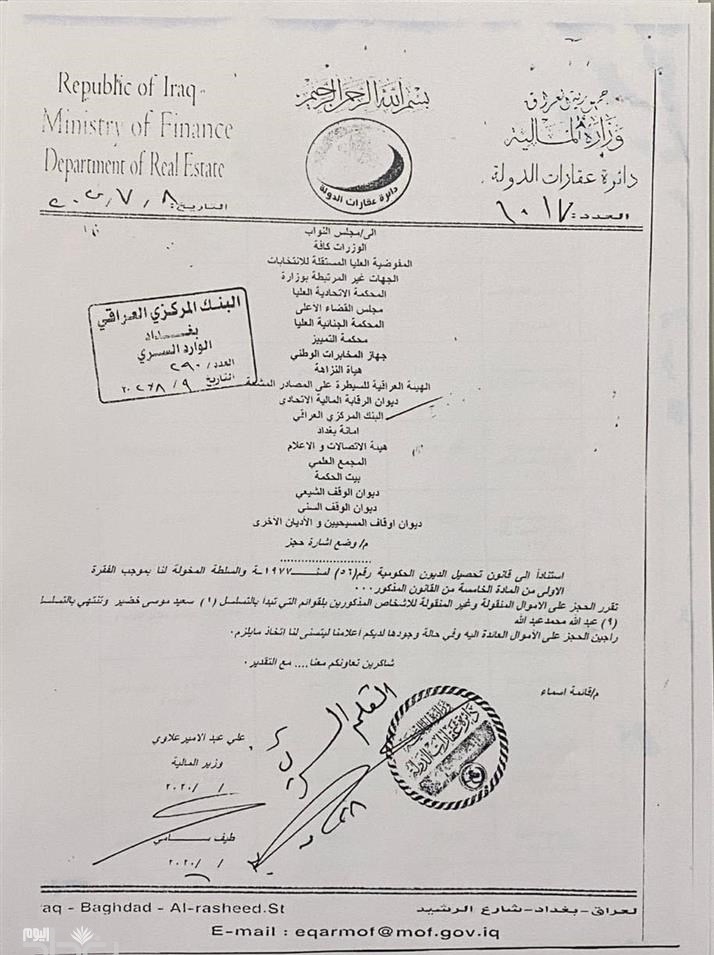 Republic of Iraq
Ministry of Finance
Department of Real Estate
بسم الله الرحمن الرحيم
جمهورية العراق
وزارة المالية
دائرة عقارات الدولة
دائرة عقارات الدولة
العدد: ٦٠١٧
التاريخ: ٢٠٢٠/٧/٨
الى/مجلس النواب
الوزرات كافة
المفوضية العليا المستقلة للانتخابات
الجهات غير المرتبطة بوزارة
المحكمة الاتحادية العليا
مجلس القضاء الاعلى
المحكمة الجنائية العليا
محكمة التمييز
جهاز المخابرات الوطني
هياة النزاهة
الهيئة العراقية للسيطرة على المصادر المشعة
ديوان الرقابة المالية الاتحادي
البنك المركزي العراقي
امانة بغداد
هيئة الاتصالات و الاعلام
المجمع العلمي
بيت الحكمة
ديوان الوقف الشيعي
ديوان الوقف السني
ديوان اوقاف المسيحيين و الأديان الاخرى
البنك المركزي العراقي
بغداد
الوارد السري
العدد/ ٢٩٠
التاريخ
م/ وضع اشارة حجز
استناداً الى قانون تحصيل الديون الحكومية رقم(٥٦) لسنــــة١٩٧٧ والسلطة المخولة لنا بموجب الفقرة
الاولى من المادة الخامسة من القانون المذكور...
تقرر الحجز على الاموال المنقولة وغير المنقولة للاشخاص المذكورين بلقوائم التي تبدأ بالتسلسل (١) سعيد موسى خضير وتنتهي بالتسلسل
(٩) عبد الله محمد عبد الله
راجين الحجز على الأموال العائدة اليه وفي حالة وجودها لديكم أعلامنا ليتسنى لنا اتخاذ مايلزم.
شاكرين تعاونكم معنا.... مع التقدير.
م/قائمة اسماء
القلم السري
دائرة عقارات الدولة
علي عبد الامير علاوي
وزير المالية
/ /٢٠٢٠
طيف ســـامي
/ /٢٠٢٠
raq - Baghdad - Al-rasheed.St
لعراق-بغداد-شارع الرشيد
E-mail : eqarmof@mof.gov.iq
اليوم